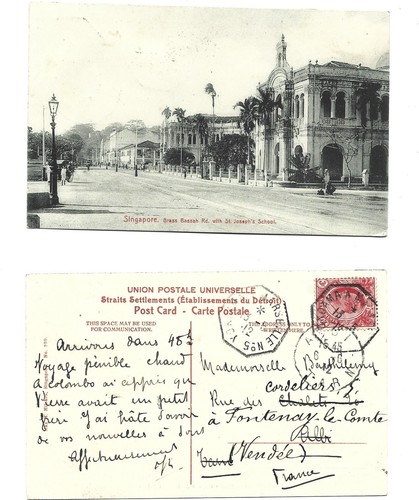 Singapore. Brass Bassah Rd. with St. Joseph's School.
UNION POSTALE UNIVERSELLE
Straits Settlements (Établissements du Détroit)
Post Card - Carte Postale
THIS SPACE MAY BE USED
FOR COMMUNICATION.
Arrivons dans 48h
Voyage pénible chaud
A Colombo ai appris que
Pierre avait un petit
frère J'ai hâte d'avoir
de vos nouvelles à tous
Affectueusement
Mademoiselle Barthélemy
Rue des Cordeliers
Chalets
à Fontenay-le-Comte
Albi
(Vendée)
France